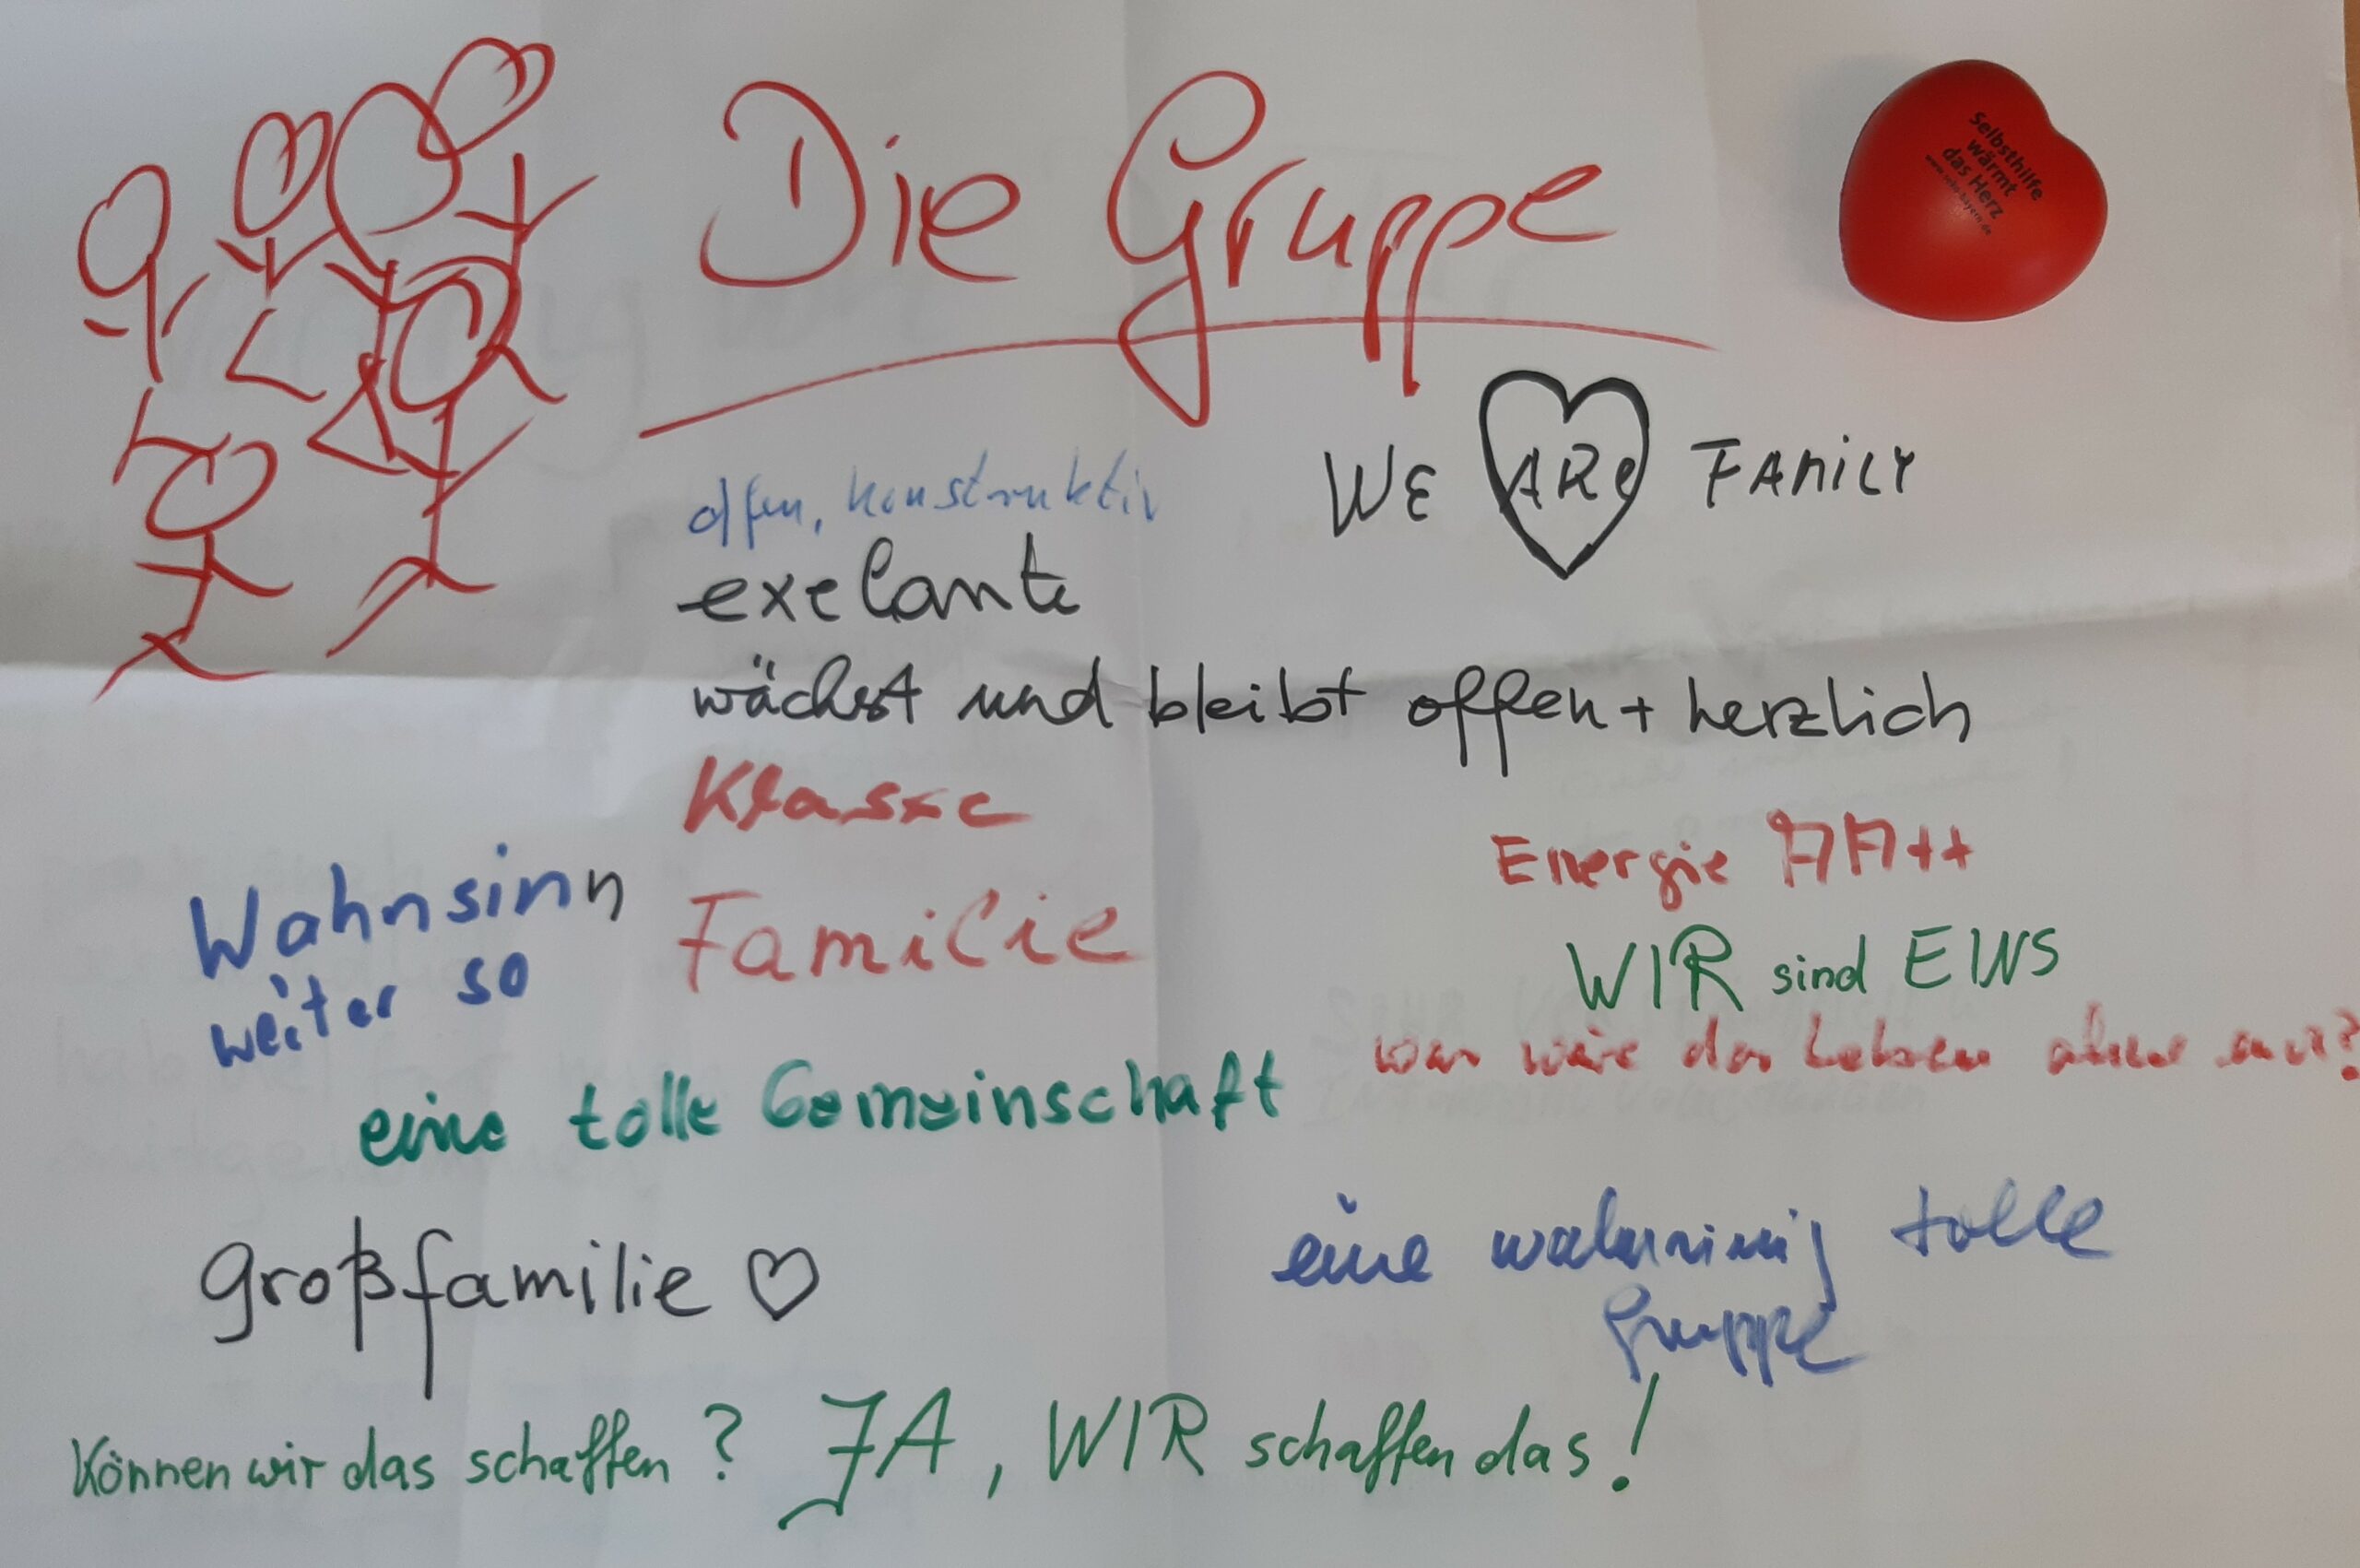 Die Gruppe
Selbsthilfe
wärmt
das Herz
WE ARE FAMILY
offen, konstruktiv
exelante
wächst und bleibt offen + herzlich
Klasse
Energie AA++
Wahnsinn
weiter so
Familie
WIR sind EINS
was wäre das Leben ohne uns?
eine tolle Gemeinschaft
Großfamilie ♡
eine wahnsinnig tolle
Gruppe
Können wir das schaffen? JA, WIR schaffen das!